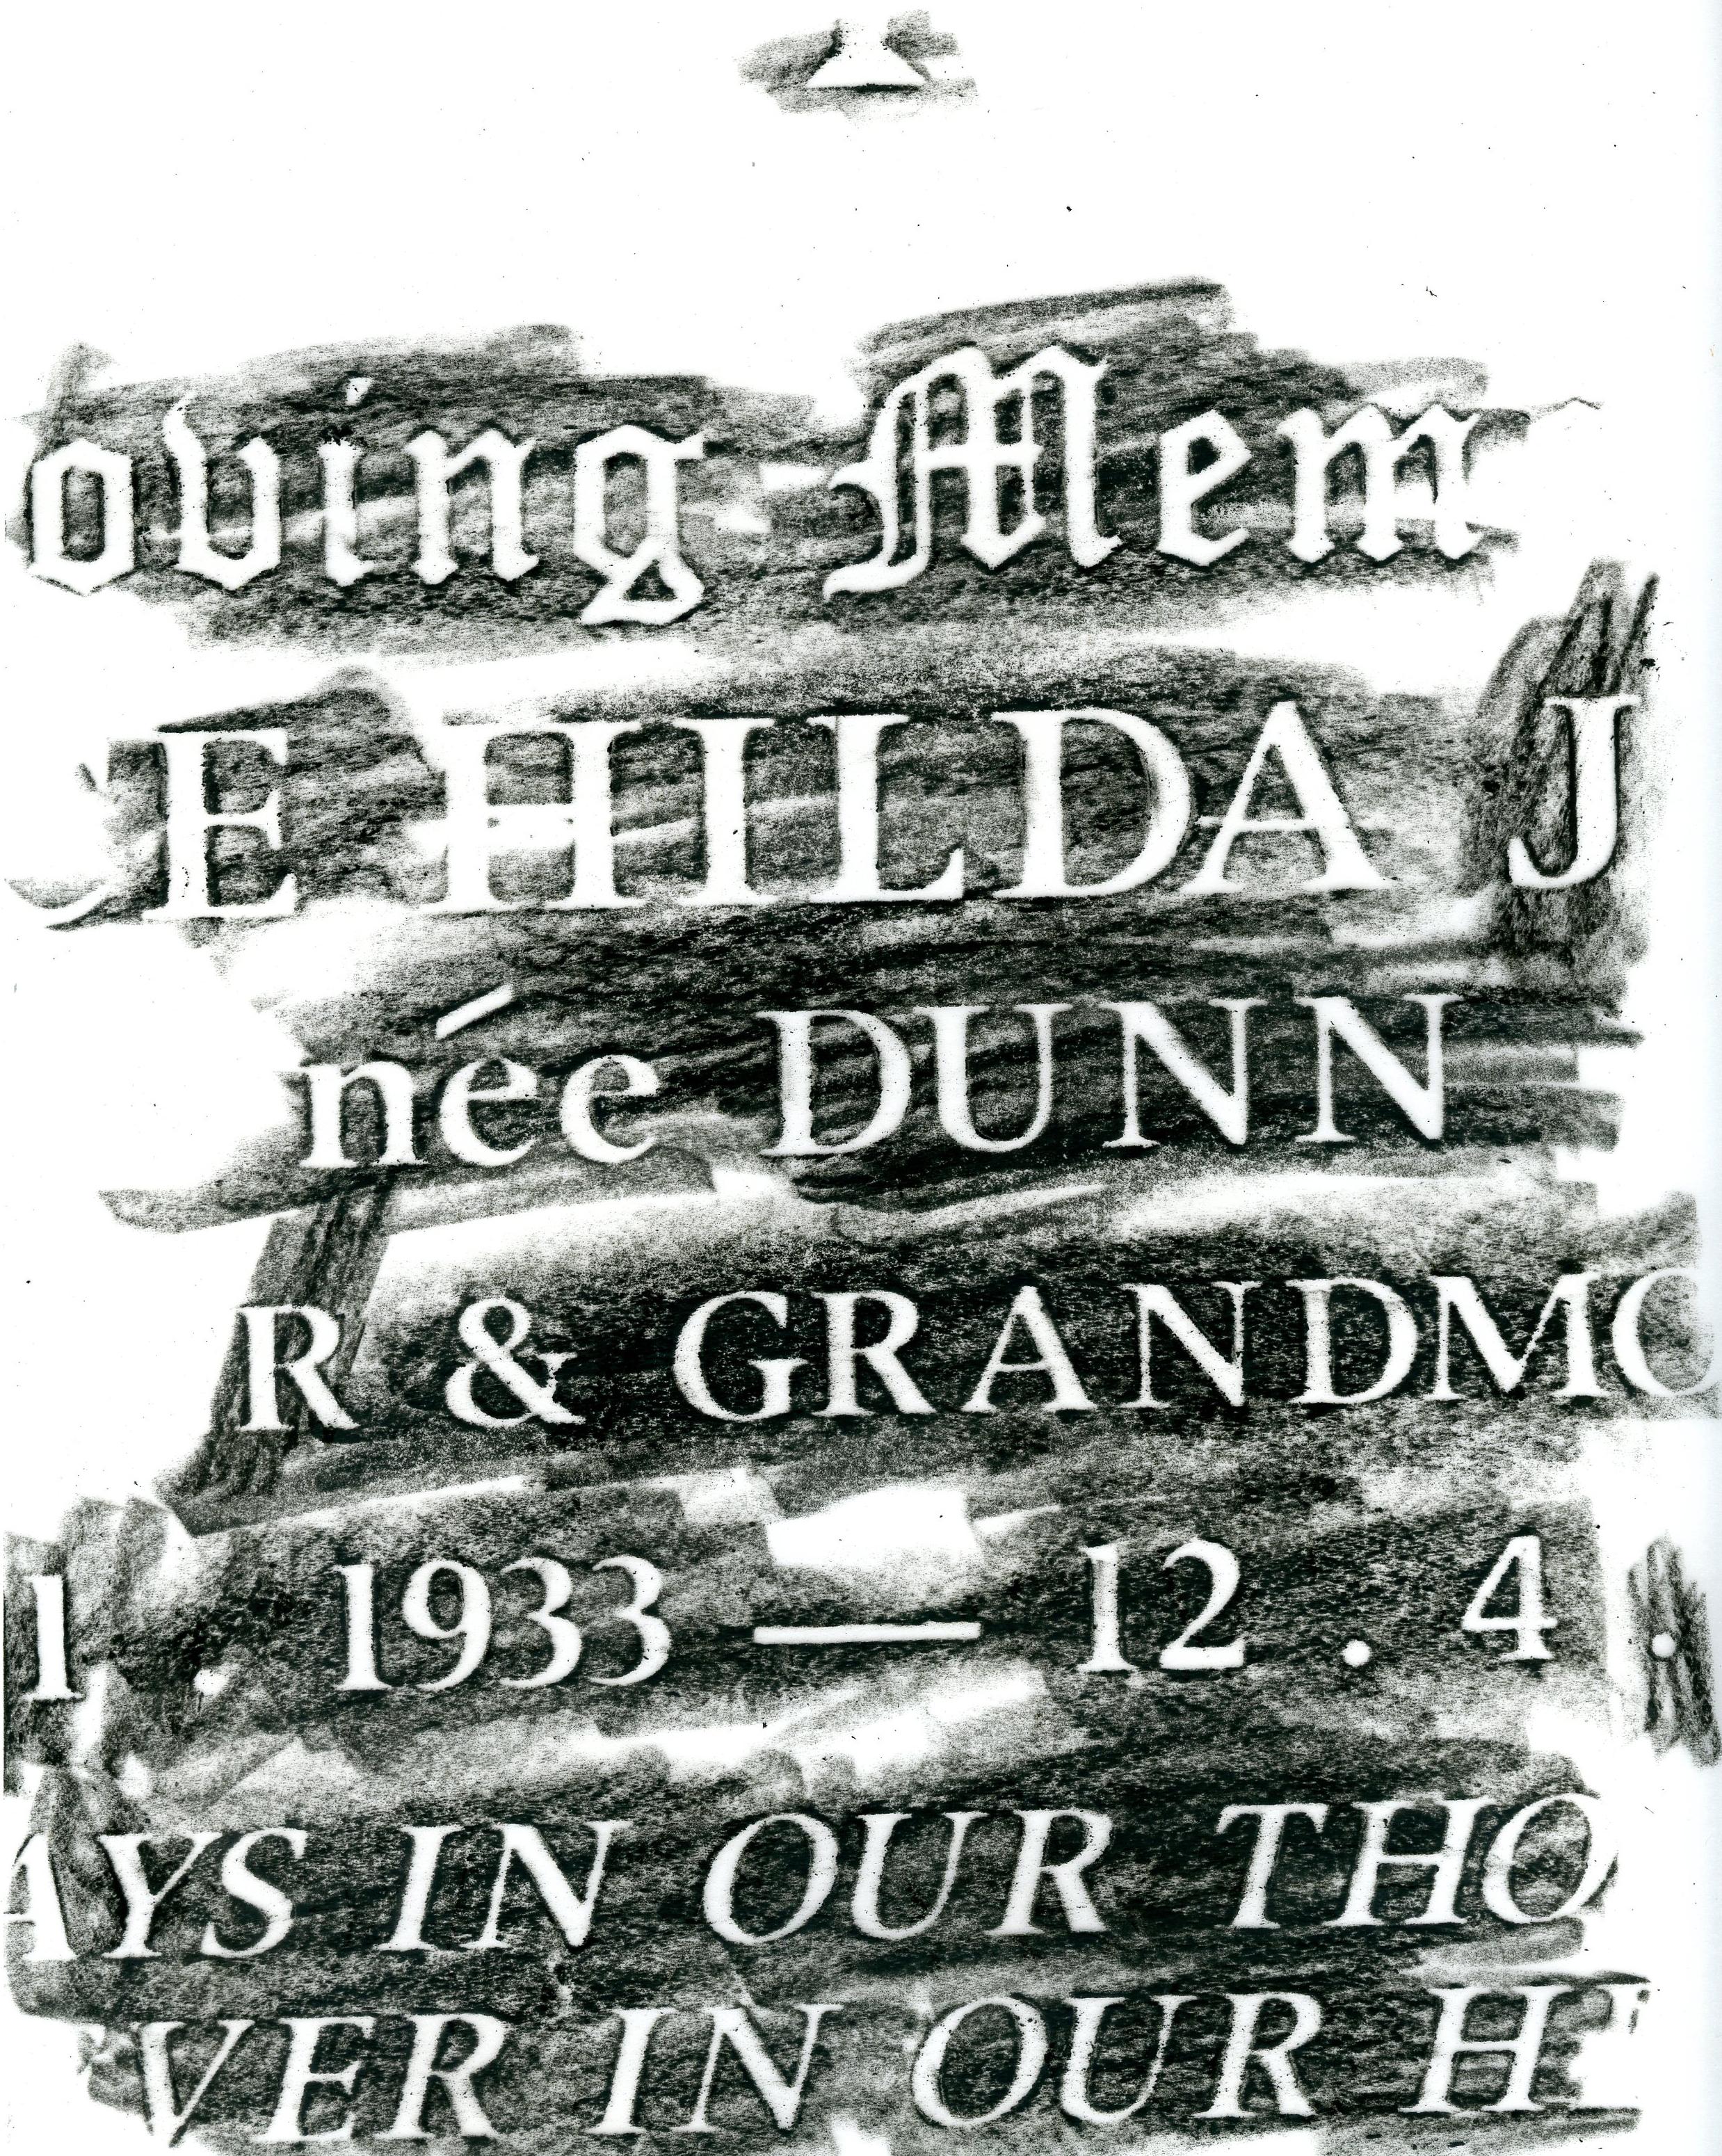 oving Mem
CE HILDA J
née DUNN
R & GRANDMO
1 . 1933 — 12 . 4 .
AYS IN OUR THO
VER IN OUR HE